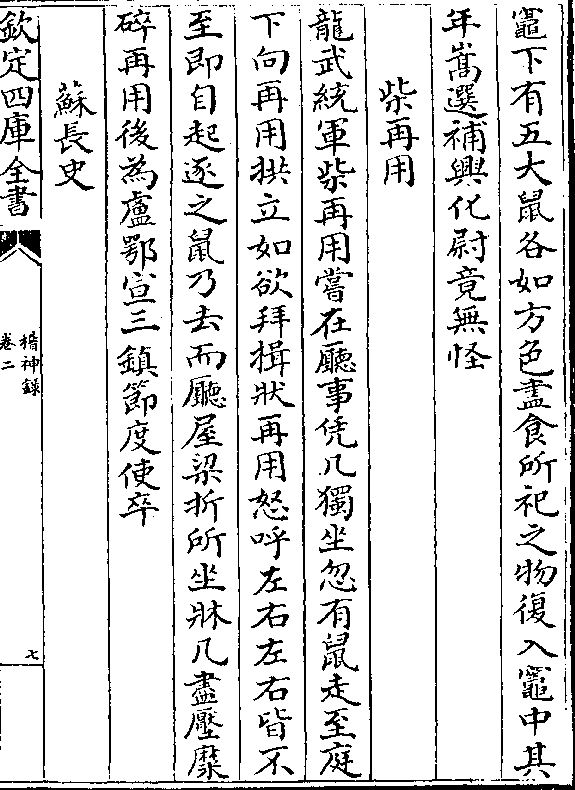 竈下有五大鼠各如方色盡食所祀之物復入竈中其
年嵩選補興化尉竟無怪
柴再用
龍武統軍柴再用嘗在廳事凭几獨坐忽有鼠走至庭
下向再用拱立如欲拜揖狀再用怒呼左右左右皆不
至即自起逐之鼠乃去而廳屋梁折所坐牀几盡壓糜
碎再用後為廬鄂宣三鎮節度使卒
蘇長史
欽定四庫全書
稽神錄
卷二
七